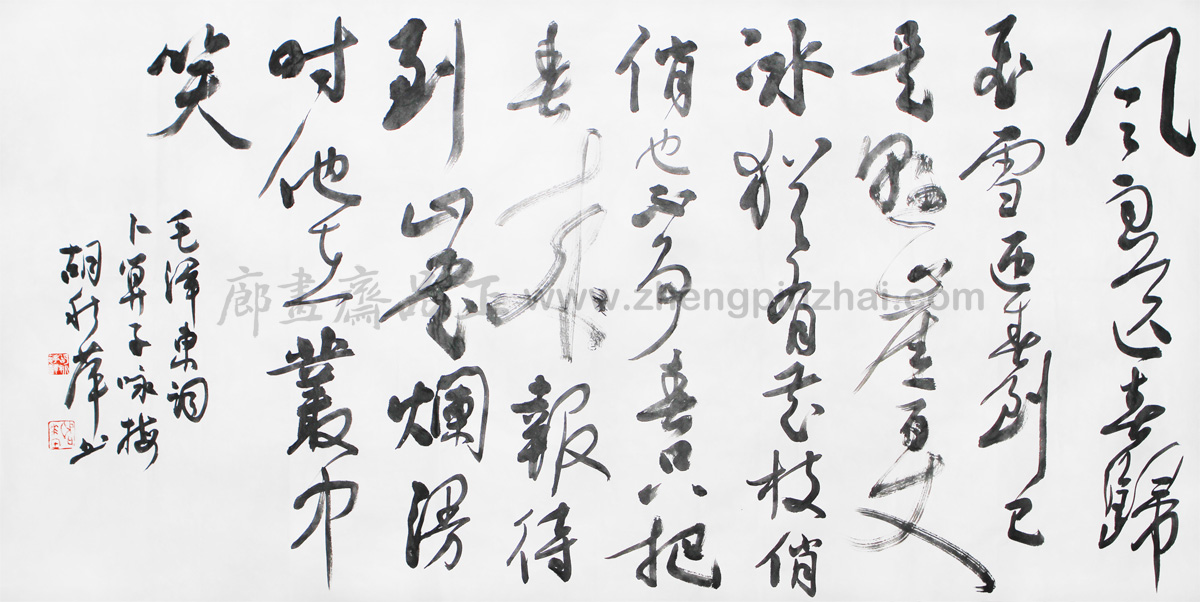 风雨送春歸
飞雪迎春到已
是悬崖百丈
冰犹有花枝俏
俏也不争春只把
春来報待
到山花爛漫
时他在叢中
笑
毛澤東詞
卜算子咏梅
胡秋萍书
廊畫齋品正 www.zhengpinzhai.com